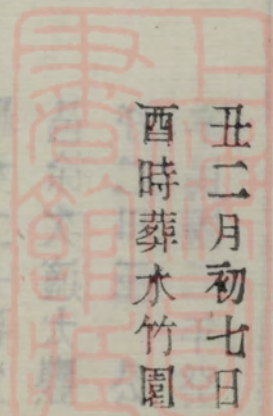 丑二月初七日
酉時葬水竹園